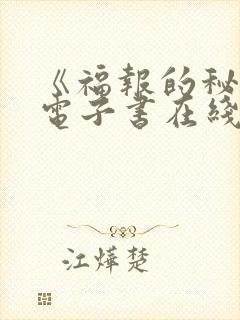 《福報的秘
電子書在綫
江燁楚